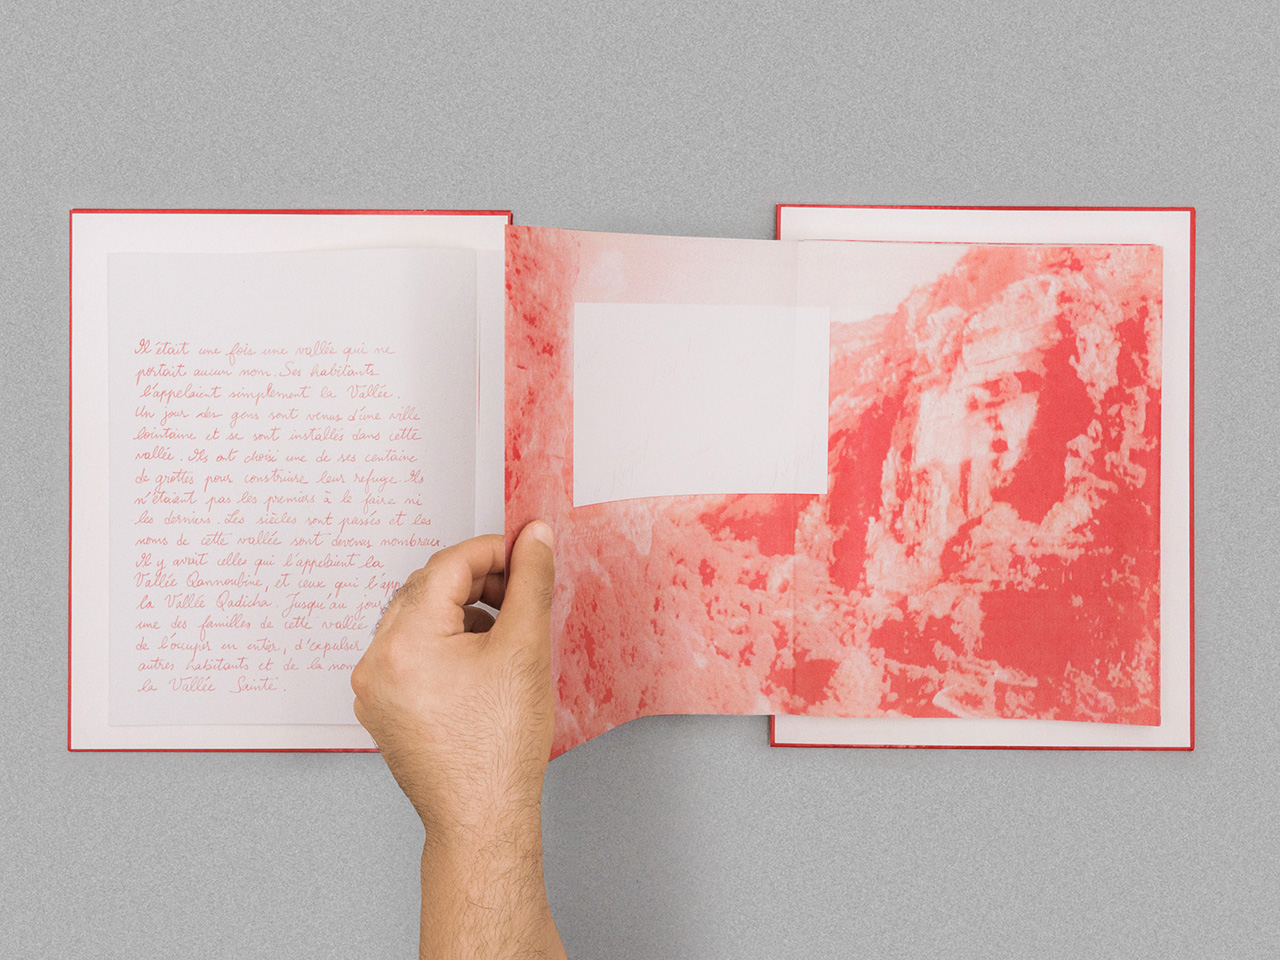 Il était une fois une vallée qui ne
portait aucun nom. Ses habitants
l'appelaient simplement la Vallée.
Un jour des gens sont venus d'une ville
lointaine et se sont installés dans cette
vallée. Ils ont choisi une de ses centaine
de grottes pour construire leur refuge. Ils
n'étaient pas les premiers à le faire ni
les derniers. Les siècles sont passés et les
noms de cette vallée sont devenus nombreux.
Il y avait celles qui l'appelaient la
Vallée Qannoubine, et ceux qui l'app
la Vallée Qadicha. Jusqu'au jou
une des familles de cette vallée
de l'occuper en entier, d'expulser
autres habitants et de la nom
la Vallée Sainte.